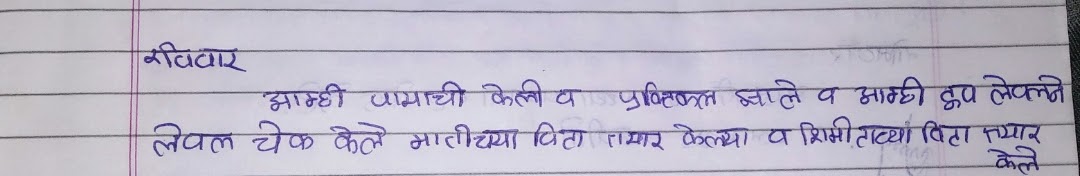 रविवार
आम्ही पायाची केली व प्रॅक्टिकल झाले व आम्ही ट्युब लेवलने
लेवल चेक केले मातीच्या विटा तयार केल्या व सिमेंटच्या विटा तयार
केले